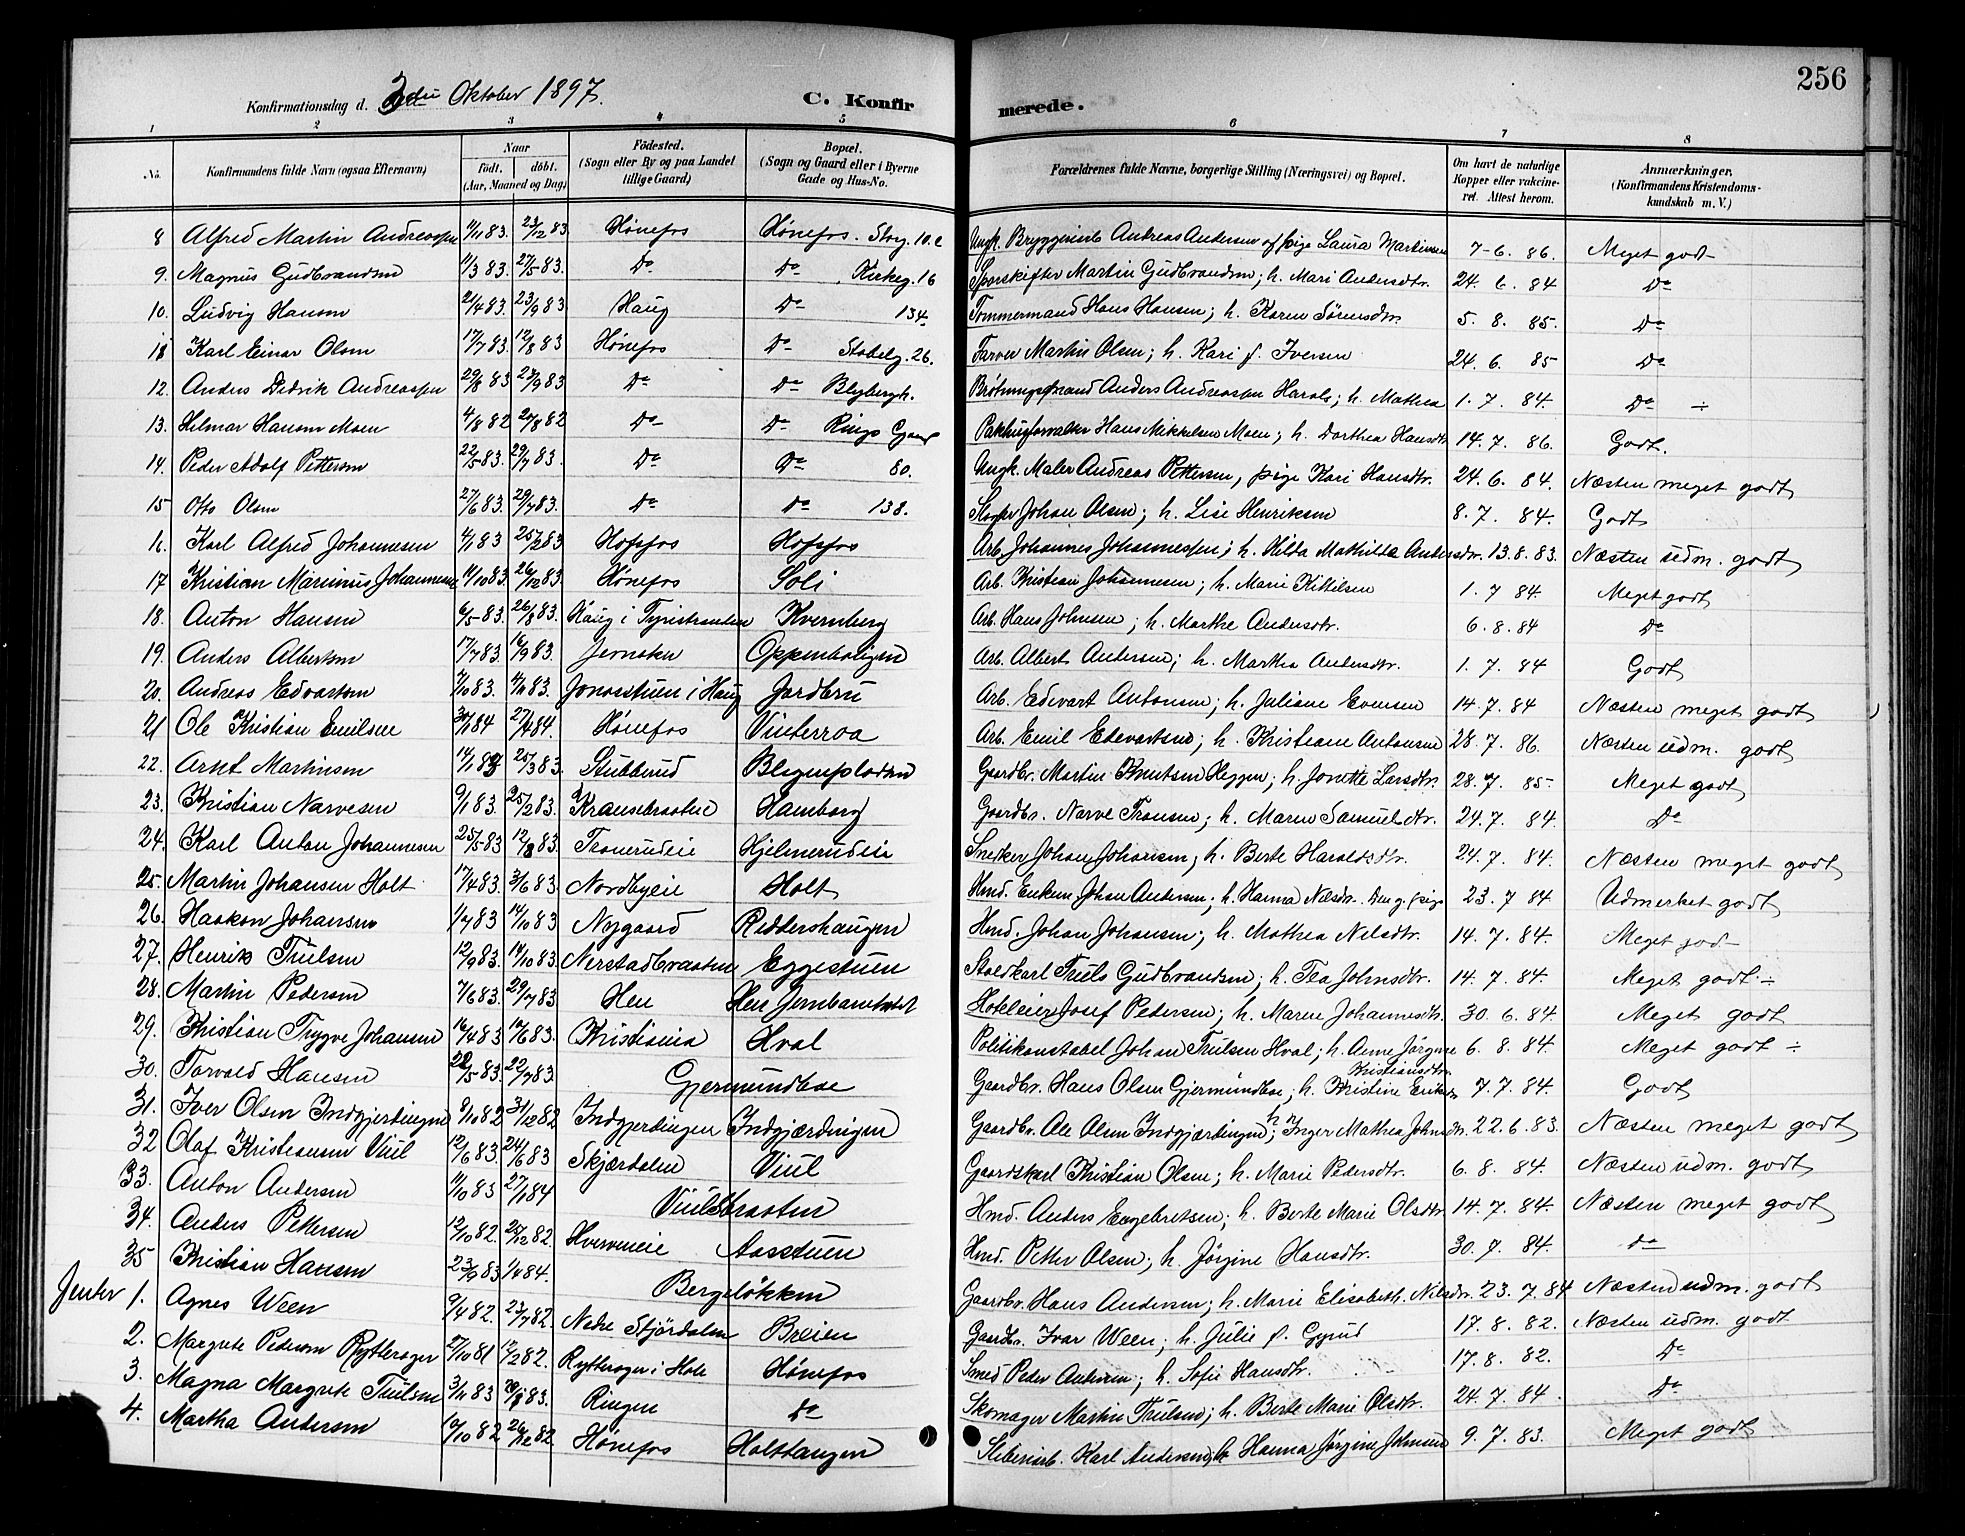 256
Konfirmationsdag d. 3die Oktober 1897. C. Konfirmerede.
1 2 3 4 5 6 7 8
No. Konfirmandens fulde Navn (ogsaa Efternavn) Naar født. døbt. (Aar, Maaned og Dag) Fødested. (Sogn eller By og paa Landet tillige Gaard) Bopæl. (Sogn og Gaard eller i Byerne Gade og Hus-No. Forældrenes fulde Navne, borgerlige Stilling (Næringsvei) og Bopæl. Om havt de naturlige Kopper eller vakcineret. Attest herom. Anmærkninger. (Konfirmandens Kristendomskundskab m. V.)
8 Alfred Martin Andreassen 11/11 83. 23/12 83 Hønefos Hønefos. Storg. 10. Ungk. Bryggeriarb. Andreas Andersen og pige Laura Martinsen 7-6. 86. Meget godt
9. Magnus Gudbrandsen 11/3 83. 27/5 83. Do Do Kirkeg. 16 Martin Gudbrandsen; h. Mari Andersdtr. 24. 6. 84 Do
10. Ludvig Hansen 21/4 83. 23/9 83 Haug Do 134 Tømmermand Hans Hansen; h. Karen Sørensdtr. 5. 8. 85. Do
Karl Einar Olsen 17/7 83. 12/8 83 Hønefos Do Stabelg. 26. Farver Martin Olsen; h. Kari f. Iversen 24. 6. 85 Do
12. Anders Didrik Andreassen 29/6 83 23/9 83 Do Do Blybergh. Anders Andreassen; h. Mathea 1. 7. 84. Do ÷
13. Hilmar Hansen Moen 4/8 82 20/8 82 Do Do Rings Gaard Pakhusforvalter Hans Mikkelsen Moen; h. Dorthea Hansdtr. 14. 7. 86. Godt.
14. Peder Adolf Pettersen 22/5 83. 29/7 83. Do Do 80. Ungk. Maler Andreas Pettersen, pige Kari Hansdtr. 24. 6. 84. Næsten meget godt
15 Otto Olsen 27/6 83. 29/7 83. Do Do 138. Johan Olsen; h. Lise Henriksen 8. 7. 84. Godt
16. Karl Alfred Johannesen 4/1 83 25/2 83 Hofsfos Hofsfos Arb. Johannes Johannessen; h. Hilda Mathilde Andersdtr. 13. 8. 83. Næsten udm. godt
17 Kristian Marinius Johannesen 11/10 83. 26/12 83. Hønefos Soli Arb. Kristian Johannesen; h. Marie Kittilsen 1. 7 84. Meget godt
18. Anton Hansen 6/5 83. 26/8 83. Haug i Tyristranden Kvernberg Arb. Hans Johnsen; h. Marthe Andersdtr. 6. 8. 84 Do
19. Anders Albertsen 17/7 83. 16/9 83. Jernaker Oppenboligen Arb. Albert Andersen; h. Marthea Andersdtr. 1. 7. 84 Godt
20. Andreas Edvartsen Jonasstuen i Haug Jordbru Arb. Edvart Antonsen; h. Juliane Evensen 14. 7. 84 Næsten meget godt
21 Ole Kristian Emilsen 30/1 84 27/4 84. Hønefos Vinterroa Arb. Emil Edevartsen; h. Kristiane Antonsen 28. 7. 86. Næsten udm. godt
22. Arnt Martinsen 14/1 83 25/3 83. Stubberud Blegepladsen Gaardbr. Martin Knutsen Heggen; h. Jonette Larsdtr. 28. 7. 85. Meget godt
23. Kristian Narvesen 9/1 83. 25/2 83. Kransebraaten Hamborg Gaardbr. Narve Tronsen; h. Maren Samuelsdtr. 24. 7. 84. Do
24. Karl Anton Johannesen 25/5 83 12/8 83. Tronerudeie Hjelmerudeie Snedker Johan Johansen; h. Berte Haraldsdtr. 24. 7. 84. Næsten meget godt
25. Martin Johansen Holt 17/4 83. 3/6 83 Nordbyeie Holt Hmd. Enkem. Johan Andersen; h. Hanna Nilsdtr. 23. 7 84 Udmerket godt
26. Haakon Johansen 1/7 83 14/10 83 Nygaard Riddershaugen Hmd. Johan Johansen; h. Mathea Nilsdtr. 14. 7. 84. Meget godt
27. Henrik Trulsen 12/9 83. 14/10 83. Nerstadbraaten Eggestuen Staldkarl Truls Gudbrandsen; h. Tea Johnsdtr. 14. 7. 84. Meget godt ÷
28. Martin Pedersen 7/6 83. 29/7 83. Hen Hen Jernbanehotel Hoteleier Josef Pedersen; h. Maren Johannesdtr. 30. 6. 84. Meget godt
29. Kristian Trygve Johansen 16/4 83 10/6 83. Kristiania Hval Politikonstabel Johan Trulsen Hval; h. Anne Jørgine Kristiansdtr. 6. 8. 84. Meget godt ÷
30. Torvald Hansen 28/5 83. 22/7 83. Gjermundboe Gaardbr. Hans Olsen Gjermundboe; h. Kristine Eriksdtr. 7. 7. 84. Godt
31. Iver Olsen Indgjerdingen 9/10 82 31/12 82 Indgjerdingen Indgjærdingen Gaardbr. Ole Olsen Indgjærdingen; h. Inger Mathea Johnsdtr. 22. 6. 83. Næsten meget godt
32 Olaf Kristiansen Viul 12/6 83. 24/6 83 Skjærdalen Viul Gaardskarl Kristian Olsen; h. Marie Pedersdtr. 6. 8. 84. Næsten udm. godt
33. Anton Andersen 11/10 83 27/1 84 Viulsbraaten Hmd. Anders Engebretsen; h. Berte Marie Olsdtr. 14. 7. 84. Næsten meget godt
34. Anders Pettersen 12/10 82. 25/12 82. Hverveneie Aasstuen Hmd. Petter Olsen; h. Jørgine Hansdtr. 30. 7. 84. do
35 Kristian Hansen 23/9 83 1/4 84. Bergeløkken Gaardbr. Hans Andersen; h. Marie Elisabeth Nilsdr. 23. 7. 84 Næsten udm. godt
Jenter 1. Agnes Ween 9/4 82. 23/7 82. Nedre Stjørdalen Breien Gaardbr. Ivar Ween; h. Julie f. 17. 8. 82. Næsten udm. godt
2. Margrete Pedersen Rytterager 17/10 81 12/2 82. Rytterager i Hole Hønefos Smed Peder Andersen; h. Sofie Hansdtr. 17. 8. 82. Do
3. Magna Margrete Trulsen 3/11 83 Ringen Do Skomager Martin Trulsen; h. Berte Marie Olsdtr. 24. 7. 84. Do
4. Martha Andersen 10/10 82 26/12 82. Hønefos Holttangen Sliberiarb. Karl Andersen; h. Hanna Jørgine Johnsen 9. 7. 83. Meget godt